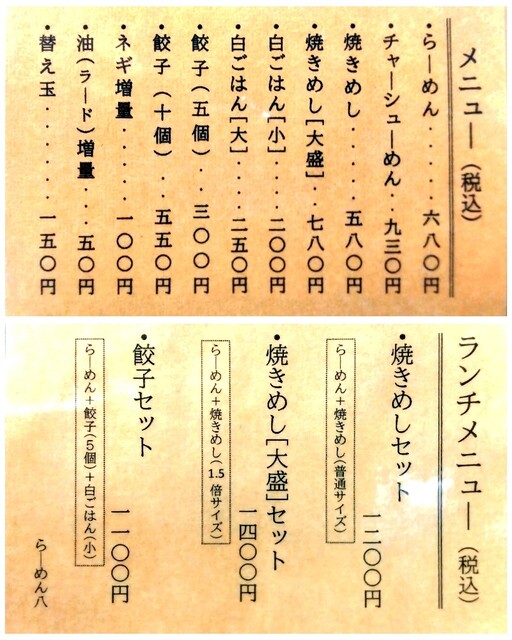 メニュー(税込)
・らーめん・・・・・・六八〇円
・チャーシューめん・・九三〇円
・焼きめし・・・・・五八〇円
・焼きめし[大盛]・・七八〇円
・白ごはん[小]・・・・二〇〇円
・白ごはん[大]・・・・二五〇円
・餃子(五個)・・三〇〇円
・餃子(十個)・・・五五〇円
・ネギ増量・・・・・一〇〇円
・油(ラード)増量・・・五〇円
・替え玉・・・・・・・一五〇円
ランチメニュー(税込)
・焼きめしセット
らーめん+焼きめし(普通サイズ)
一二〇〇円
・焼きめし[大盛]セット
らーめん+焼きめし(1.5倍サイズ)
一四〇〇円
・餃子セット
らーめん+餃子(5個)+白ごはん(小)
一一〇〇円
らーめん八